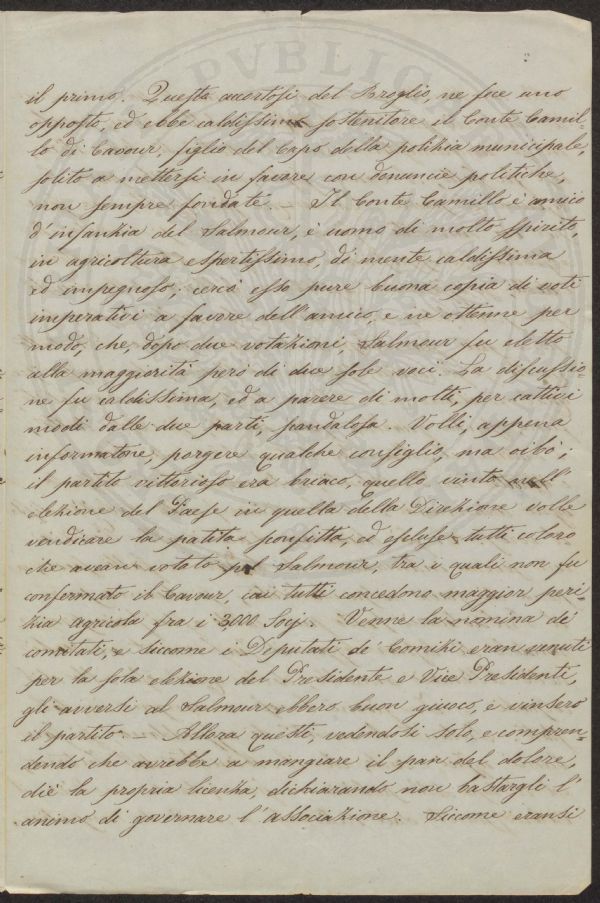 il primo. Questa accortosi del Broglio, ne fece uno
opposto, ed ebbe caldissimo sostenitore il Conte Camil-
lo di Cavour, figlio del Capo della polizia municipale,
solito a mettersi in favore con denuncie politiche,
non sempre fondate. — Il Conte Camillo è amico
d'infanzia del Salmour, è uomo di molto spirito,
in agricoltura espertissimo, di mente caldissima
ed impegnoso; cercò esso pure buona copia di voti
imperativi a favore dell'amico, e ne ottenne per
modo, che, dopo due votazioni, Salmour fu eletto
alla maggiorità però di due sole voci. La discussio-
ne fu caldissima, ed a parere di molti, per cattivi
modi dalle due parti, scandalosa. Volli, appena
informatone, porgere qualche consiglio, ma oibò;
il partito vittorioso era briaco, quello vinto nell'
elezione del Paese in quella della Direzione volle
vendicare la patita sconfitta, ed escluse tutti coloro
che avean votato pel Salmour, tra i quali non fu
confermato il Cavour, cui tutti concedono maggior peri-
zia agricola fra i 3,000 Socj. Venne la nomina de'
comitati, e siccome i Deputati de' Comizi eran venuti
per la sola elezione del Presidente e Vice Presidenti,
gli avversi al Salmour ebbero buon giuoco, e vinsero
il partito. — Allora questi, vedendosi solo, e compren-
dendo che avrebbe a mangiare il pan del dolore,
diè la propria licenza, dichiarando non bastargli l'
animo di governare l'associazione. Siccome eransi
PVBLIC